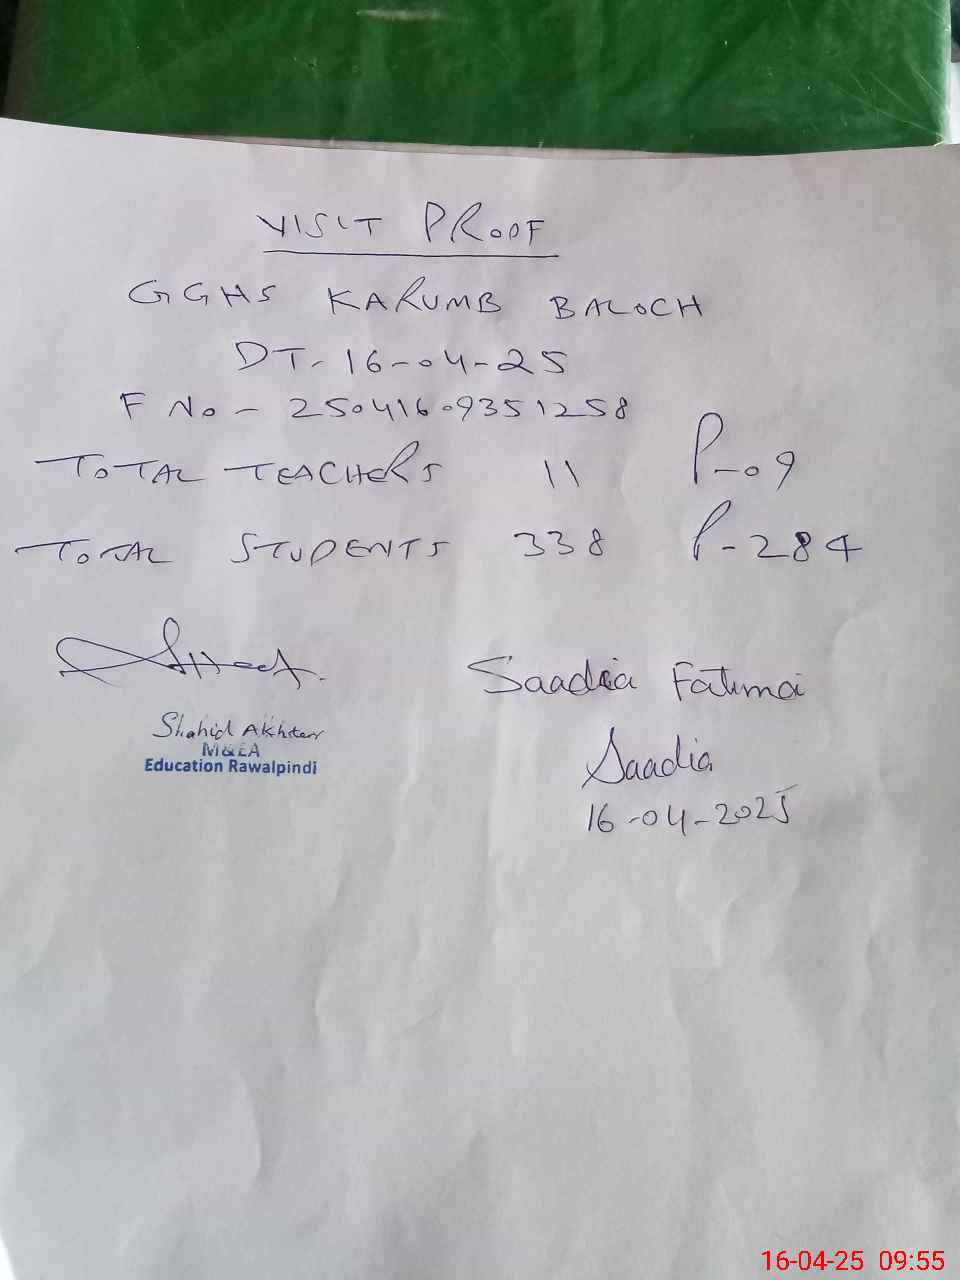 VISIT PROOF
GGHS KARUMB BALOCH
DT- 16-04-25
F No - 25041609351258
TOTAL TEACHERS 11 P-09
TOTAL STUDENTS 338 P-284
Saadia Fatima
Shahid Akhter
M&EA
Education Rawalpindi
Saadia
16-04-2025
16-04-25 09:55